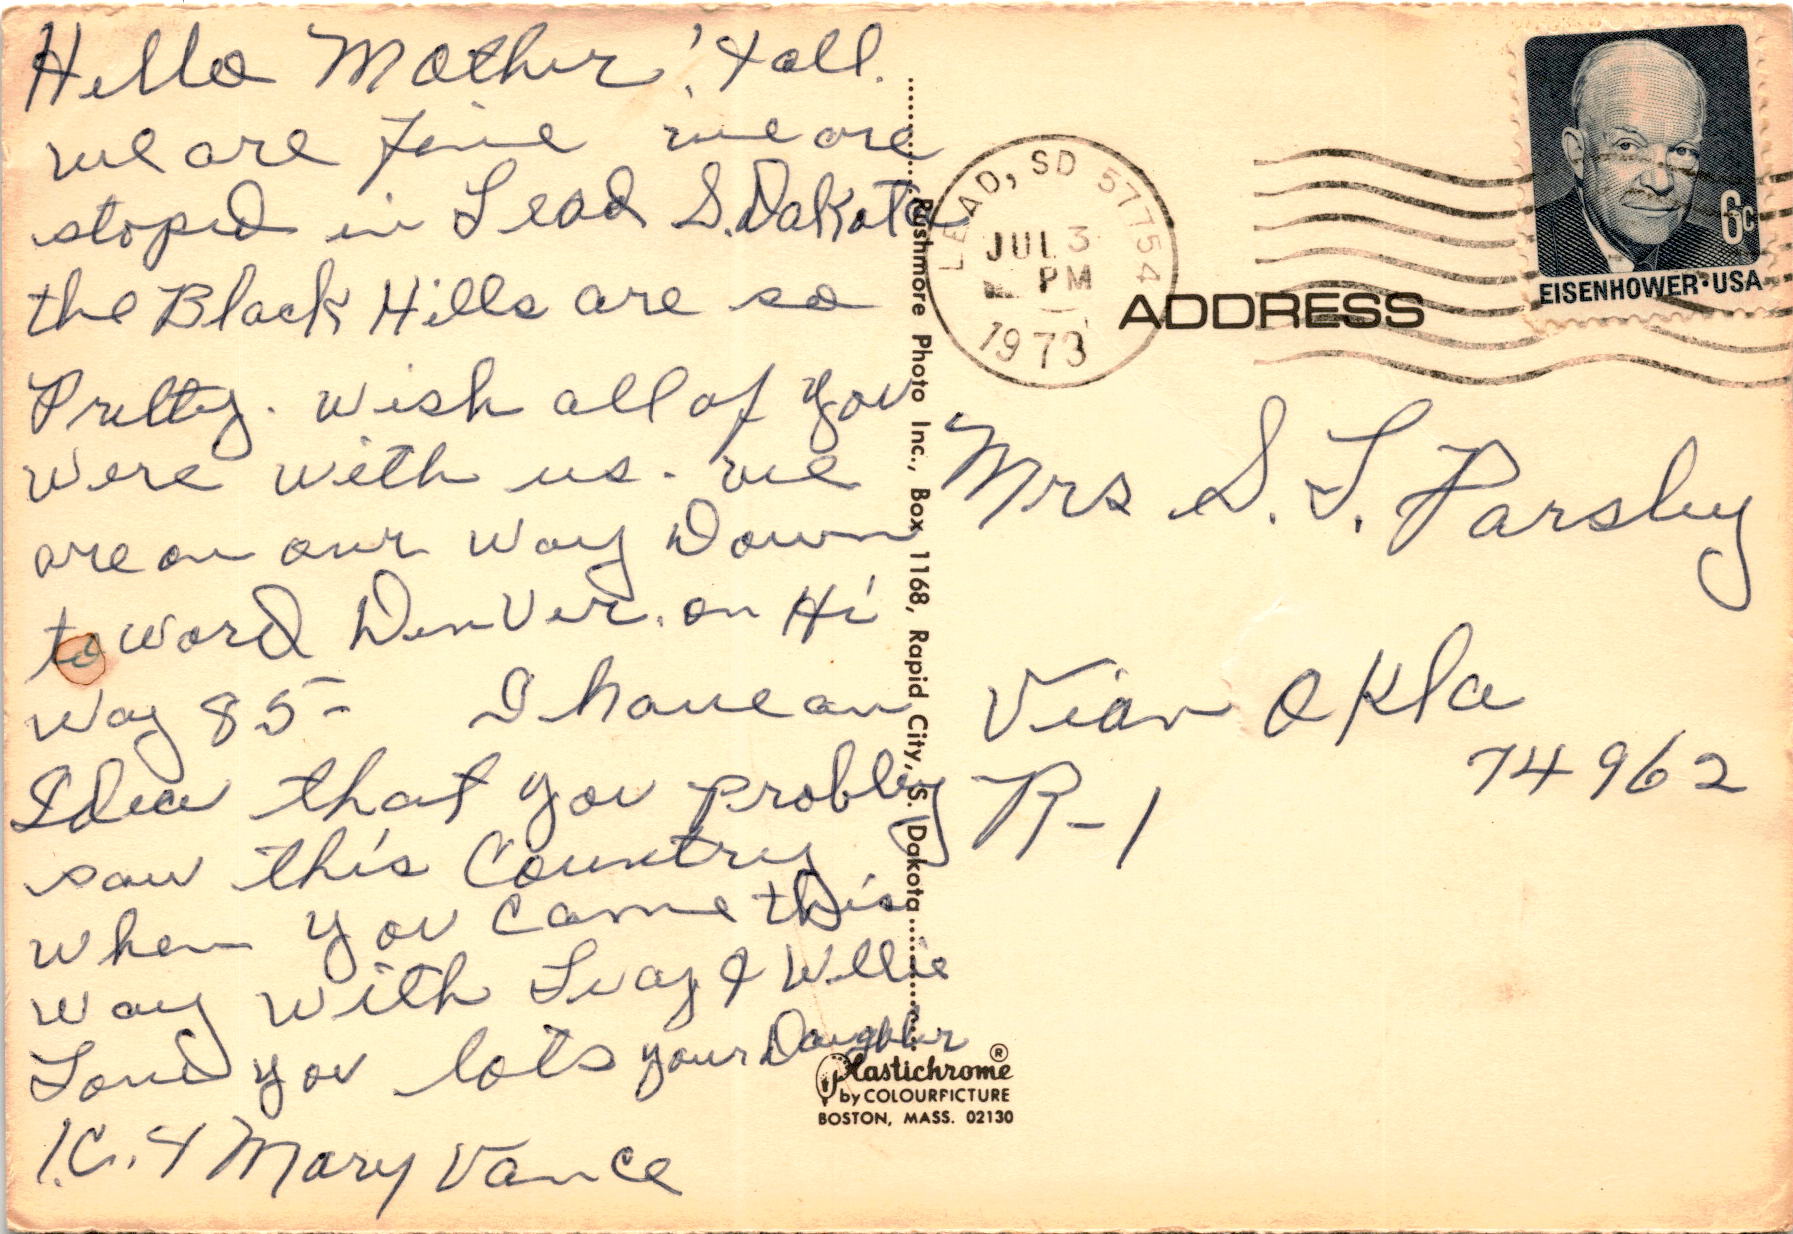 Hello Mother, & all.
we are fine we are
stoped in Lead S. Dakota
the Black Hills are so
Pretty. wish all of you
were with us. we
are on our way Down
toward Denver. on Hi
way 85- I have an
Idea that you probbly
saw this Country
when you came this
way with & Willie
Love you lots your Daughter
& Mary Vance
Rushmore Photo Inc., Box 1168, Rapid City, S. Dakota
LEAD, SD 57754
JUL 3
PM
1973
6c
EISENHOWER·USA
ADDRESS
Mrs S. L. Parsley
Vian Okla
74962
R-1
Plastichrome ®
by COLOURPICTURE
BOSTON, MASS. 02130